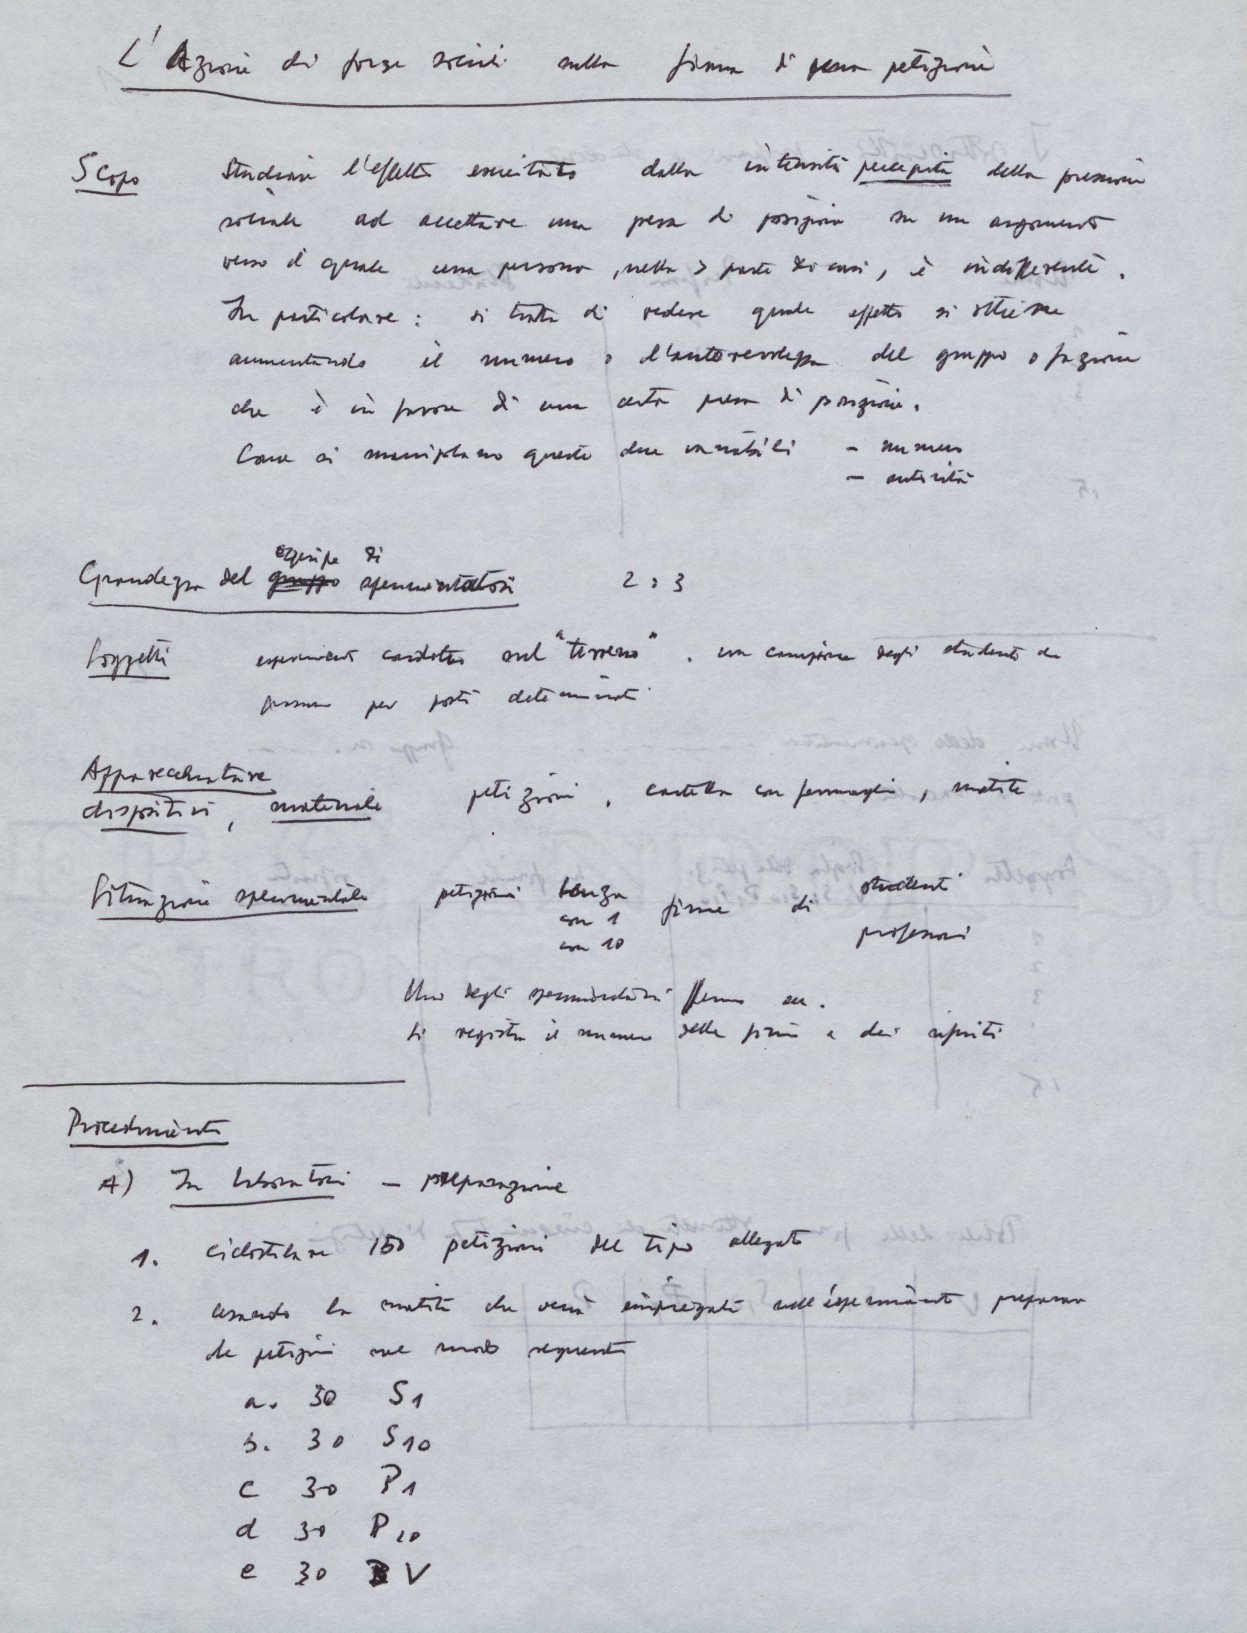 L'Azione di forze sociali sulla firma di una petizione
Scopo Studiare l'effetto esercitato dalla intensità percepita della pressione
sociale ad accettare una presa di posizione su un argomento
verso il quale una persona, nella > parte dei casi, è indifferente.
In particolare: si tratta di vedere quale effetto si ottiene
aumentando il numero o l'autorevolezza del gruppo o fazione
che è in favore di una certa presa di posizione.
Come si manipolano queste due variabili - numero
- autorità
équipe di
Grandezza del gruppo sperimentatori 2 o 3
Soggetti esperimento condotto sul "terreno". un campione degli studenti che
passano per posti determinati
Apparecchiature
dispositivi, materiale petizioni, cartella con fermagli, matite
Situazione sperimentale petizioni senza firme di studenti
con 1
con 10 professori
Uno degli sperimentatori
Si registra il numero delle firme e dei rifiuti
Procedimento
A) In laboratorio - preparazione
1. ciclostilare 150 petizioni del tipo allegato
2. usando la matita che verrà impiegata nell'esperimento preparare
le petizioni nel modo seguente
a. 30 S1
b. 30 S10
c 30 P1
d 30 P10
e 30 V